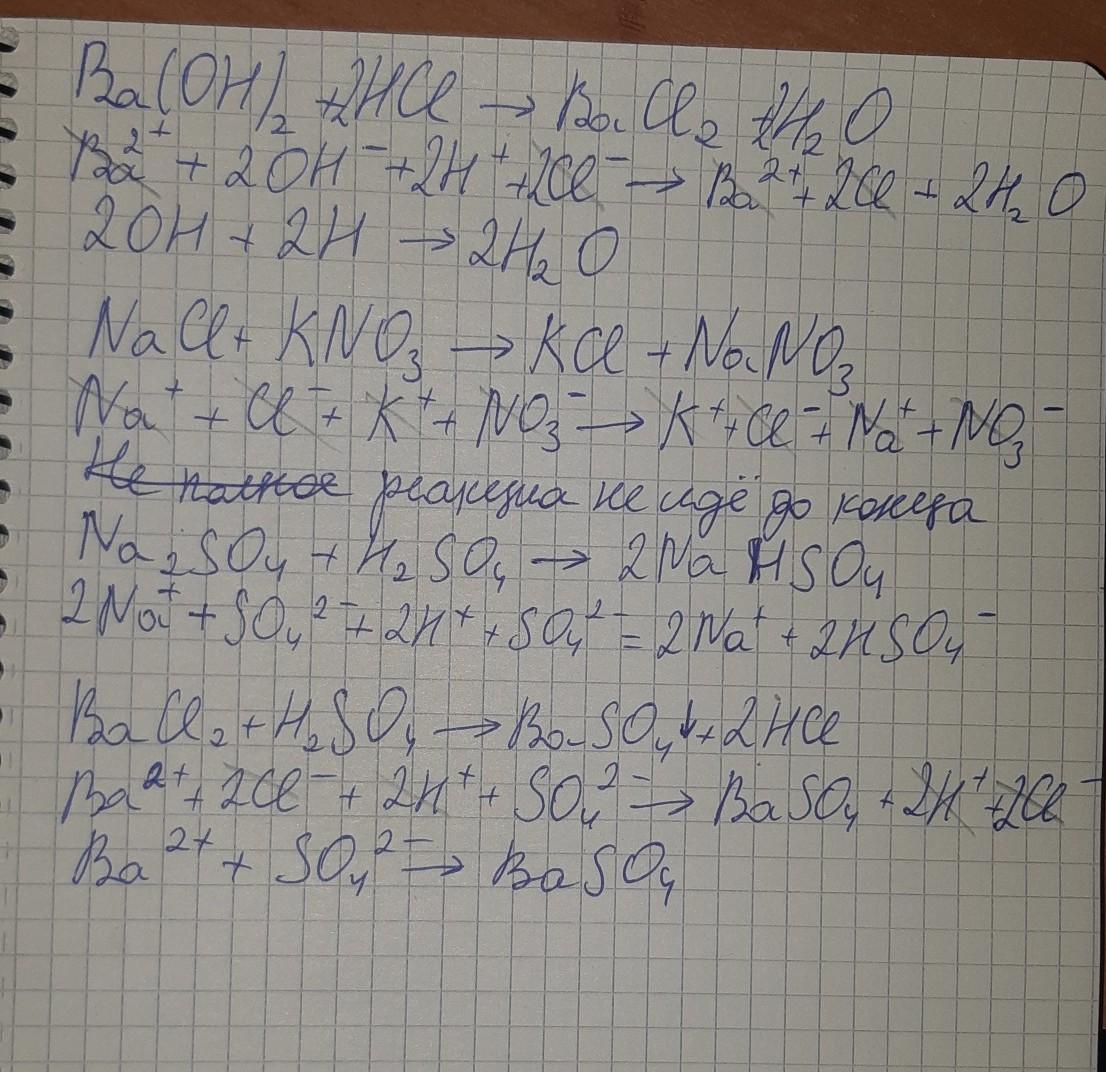 Ba(OH)₂ + 2HCl → BaCl₂ + 2H₂O
Ba²⁺ + 2OH⁻ + 2H⁺ + 2Cl⁻ → Ba²⁺ + 2Cl + 2H₂O
2OH + 2H → 2H₂O
NaCl + KNO₃ → KCl + NaNO₃
Na⁺ + Cl⁻ + K⁺ + NO₃⁻ → K⁺ + Cl⁻ + Na⁺ + NO₃⁻
Не полное реакция не идё до конца
Na₂SO₄ + H₂SO₄ → 2NaHSO₄
2Na⁺ + SO₄²⁻ + 2H⁺ + SO₄²⁻ = 2Na⁺ + 2HSO₄⁻
BaCl₂ + H₂SO₄ → BaSO₄↓ + 2HCl
Ba²⁺ + 2Cl⁻ + 2H⁺ + SO₄²⁻ → BaSO₄ + 2H⁺ + 2Cl⁻
Ba²⁺ + SO₄²⁻ → BaSO₄